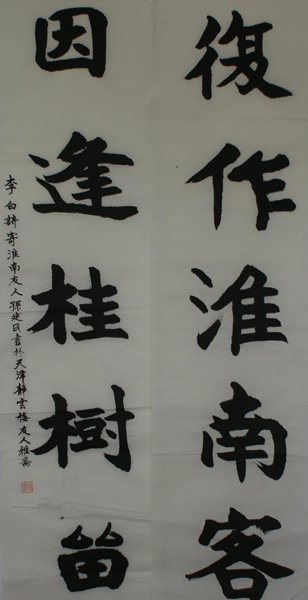 復作淮南客
因逢桂樹畱
李白詩寄淮南友人孫建民書於天津靜雲樓友人雅齋